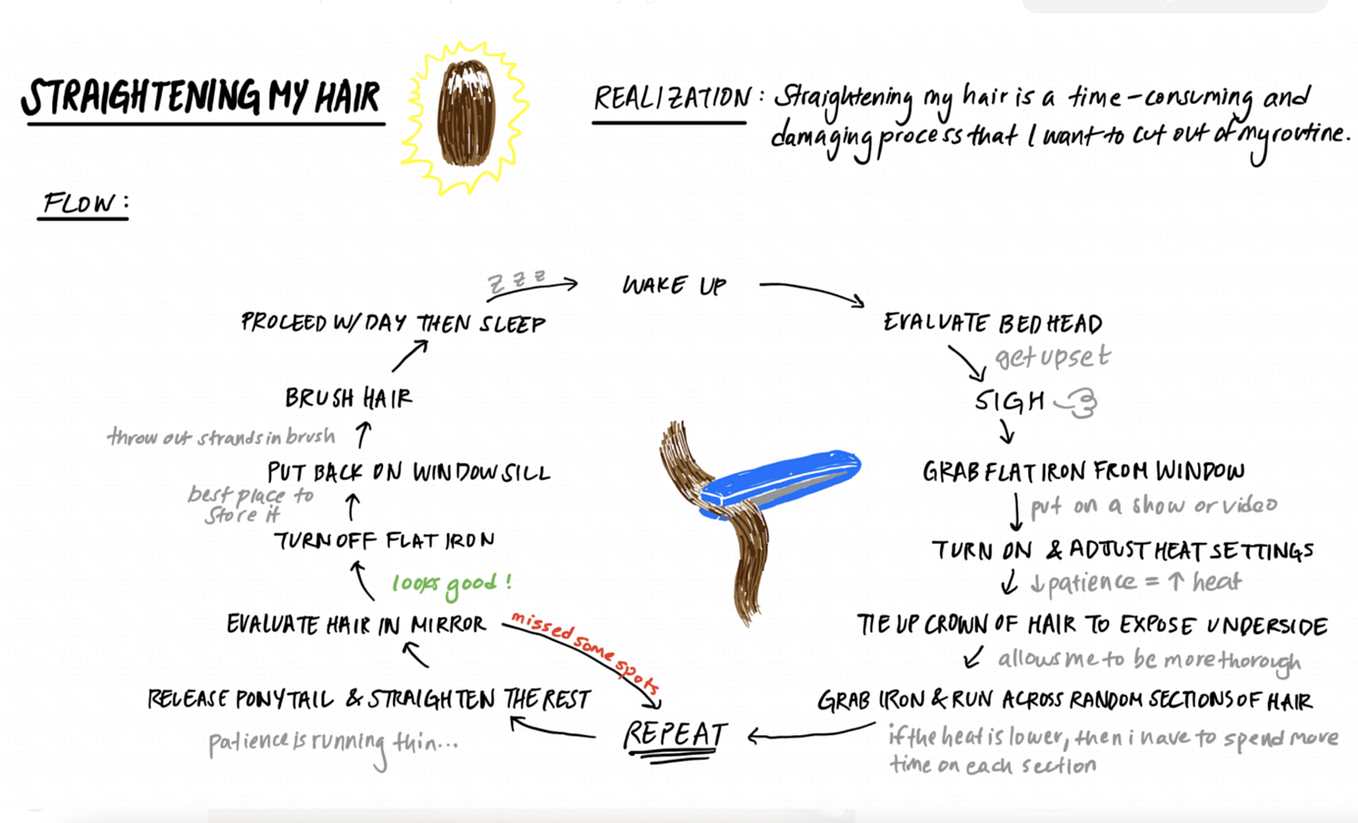 STRAIGHTENING MY HAIR
REALIZATION: Straightening my hair is a time-consuming and
damaging process that I want to cut out of my routine.
FLOW:
zzz
WAKE UP
EVALUATE BED HEAD
get upset
SIGH
GRAB FLAT IRON FROM WINDOW
put on a show or video
TURN ON & ADJUST HEAT SETTINGS
↓ patience = ↑ heat
TIE UP CROWN OF HAIR TO EXPOSE UNDERSIDE
allows me to be more thorough
GRAB IRON & RUN ACROSS RANDOM SECTIONS OF HAIR
if the heat is lower, then i have to spend more
time on each section
REPEAT
RELEASE PONYTAIL & STRAIGHTEN THE REST
patience is running thin...
EVALUATE HAIR IN MIRROR
missed some spots
looks good!
TURN OFF FLAT IRON
best place to
store it
PUT BACK ON WINDOW SILL
throw out strands in brush
BRUSH HAIR
PROCEED W/ DAY THEN SLEEP